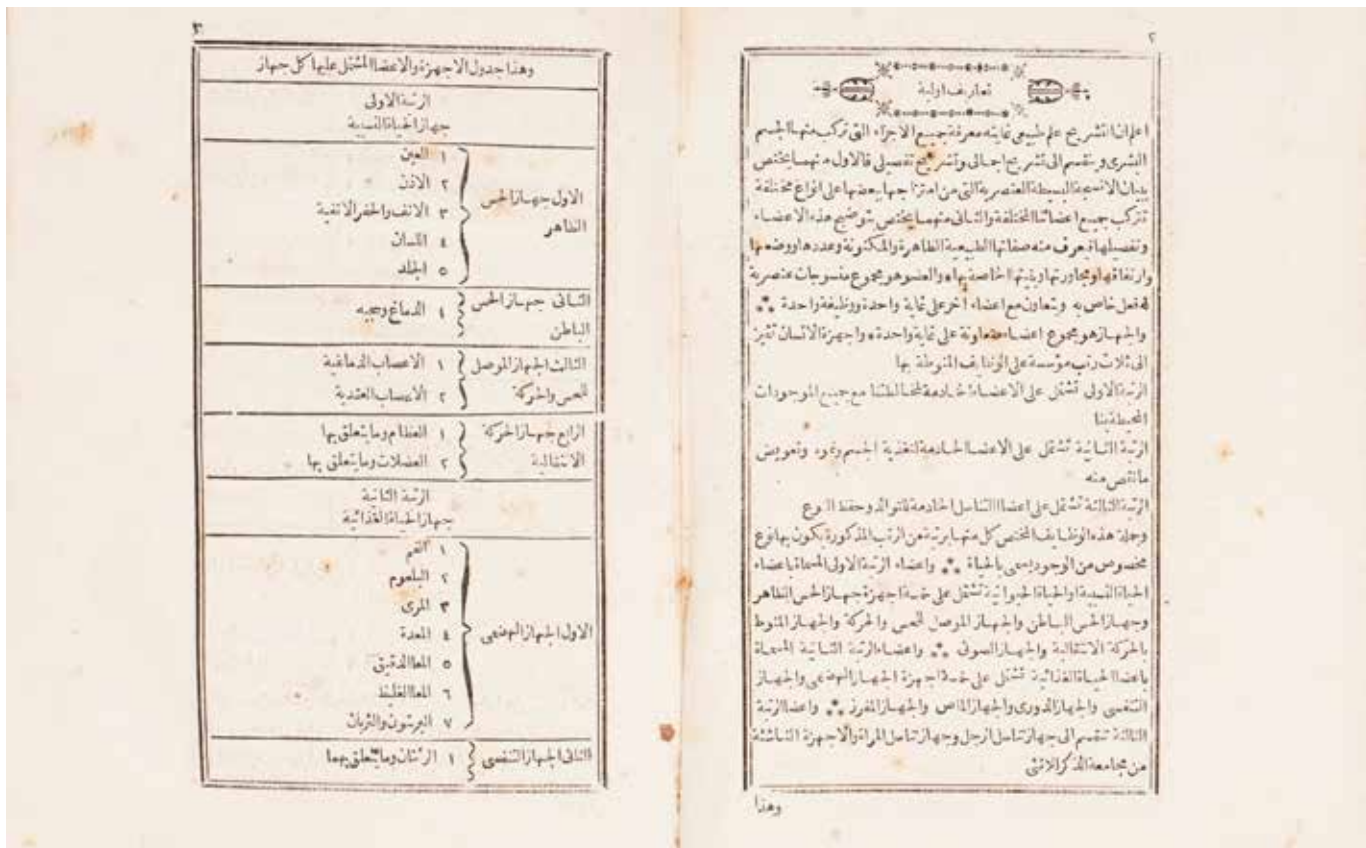 ٢
تعاريف اولية
اعلم ان التشريح علم طبيعى غايته معرفة جميع الاجزاء التى تركب منها الجسم
البشرى وينقسم الى تشريح اجمالى وتشريح تفصيلى فالاول منهما يختص
ببيان الانسجة البسيطة العنصرية التى من امتزاجها بعضها على انواع مختلفة
تتركب جميع اعضائنا المختلفة والثانى منهما يختص بتوضيح هذه الاعضاء
وتفصيلها فيعرف منه صفاتها الطبيعية الظاهرة والمكنونة وعددها ووضعها
وارتفاقها ومجاورتها وبنيتها الخاصة بها والعضو هو مجموع منسوجات عنصرية
له فعل خاص به ويتعاون مع اعضاء اخر على غاية واحدة ووظيفة واحدة
والجهاز هو مجموع اعضاء متعاونة على غاية واحدة واجهزة الانسان تميز
الى ثلاث رتب مؤسسة على الوظايف المنوطة بها
الرتبة الاولى تشتمل على الاعضاء الخادمة لمخالطتنا مع جميع الموجودات
المحيطة بنا
الرتبة الثانية تشتمل على الاعضا الخادمة لتغذية الجسم ونموه وتعويض
ما نقص منه
الرتبة الثالثة تشتمل على اعضاا التناسل الخادمة للتوالد وحفظ النوع
وجملة هذه الوظايف المختص كل منها برتبة من الرتب المذكورة يكون بها نوع
مخصوص من الوجود يسمى بالحياة واعضاء الرتبة الاولى المسماة باعضاء
الحياة النسبية او الحياة الحيوانية تشتمل على خمسة اجهزة جهاز الحس الظاهر
وجهاز الحس الباطن والجهاز الموصل للحس والحركة والجهاز المنوط
بالحركة الانتقالية والجهاز الصوتى واعضاء الرتبة الثانية المسماة
باعضا الحياة الغذائية تشتمل على خمسة اجهزة الجهاز الهضمى والجهاز
التنفسى والجهاز الدورى والجهاز الماص والجهاز المفرز واعضا الرتبة
الثالثة تنقسم الى جهاز تناسل الرجل وجهاز تناسل المراة والاجهزة الناشئة
من مجامعة الذكر الانثى
وهذا
٣
وهذا جدول الاجهزة والاعضا المشتمل عليها كل جهاز
الرتبة الاولى
جهاز الحياة النسبية
الاول جهاز الحس الظاهر
١ العين
٢ الاذن
٣ الانف والحفر الانفية
٤ اللسان
٥ الجلد
الثانى جهاز الحس الباطن
١ الدماغ وحجبه
الثالث الجهاز الموصل للحس والحركة
١ الاعصاب الدماغية
٢ الاعصاب العقدية
الرابع جهاز الحركة الانتقالية
١ العظام وما يتعلق بها
٢ العضلات وما يتعلق بها
الرتبة الثانية
جهاز الحياة الغذائية
الاول الجهاز الهضمى
١ الفم
٢ البلعوم
٣ المرى
٤ المعدة
٥ المعا الدقيق
٦ المعا الغليظ
٧ البريتون والثربان
الثانى الجهاز التنفسى
١ الرئتان وما يتعلق بهما